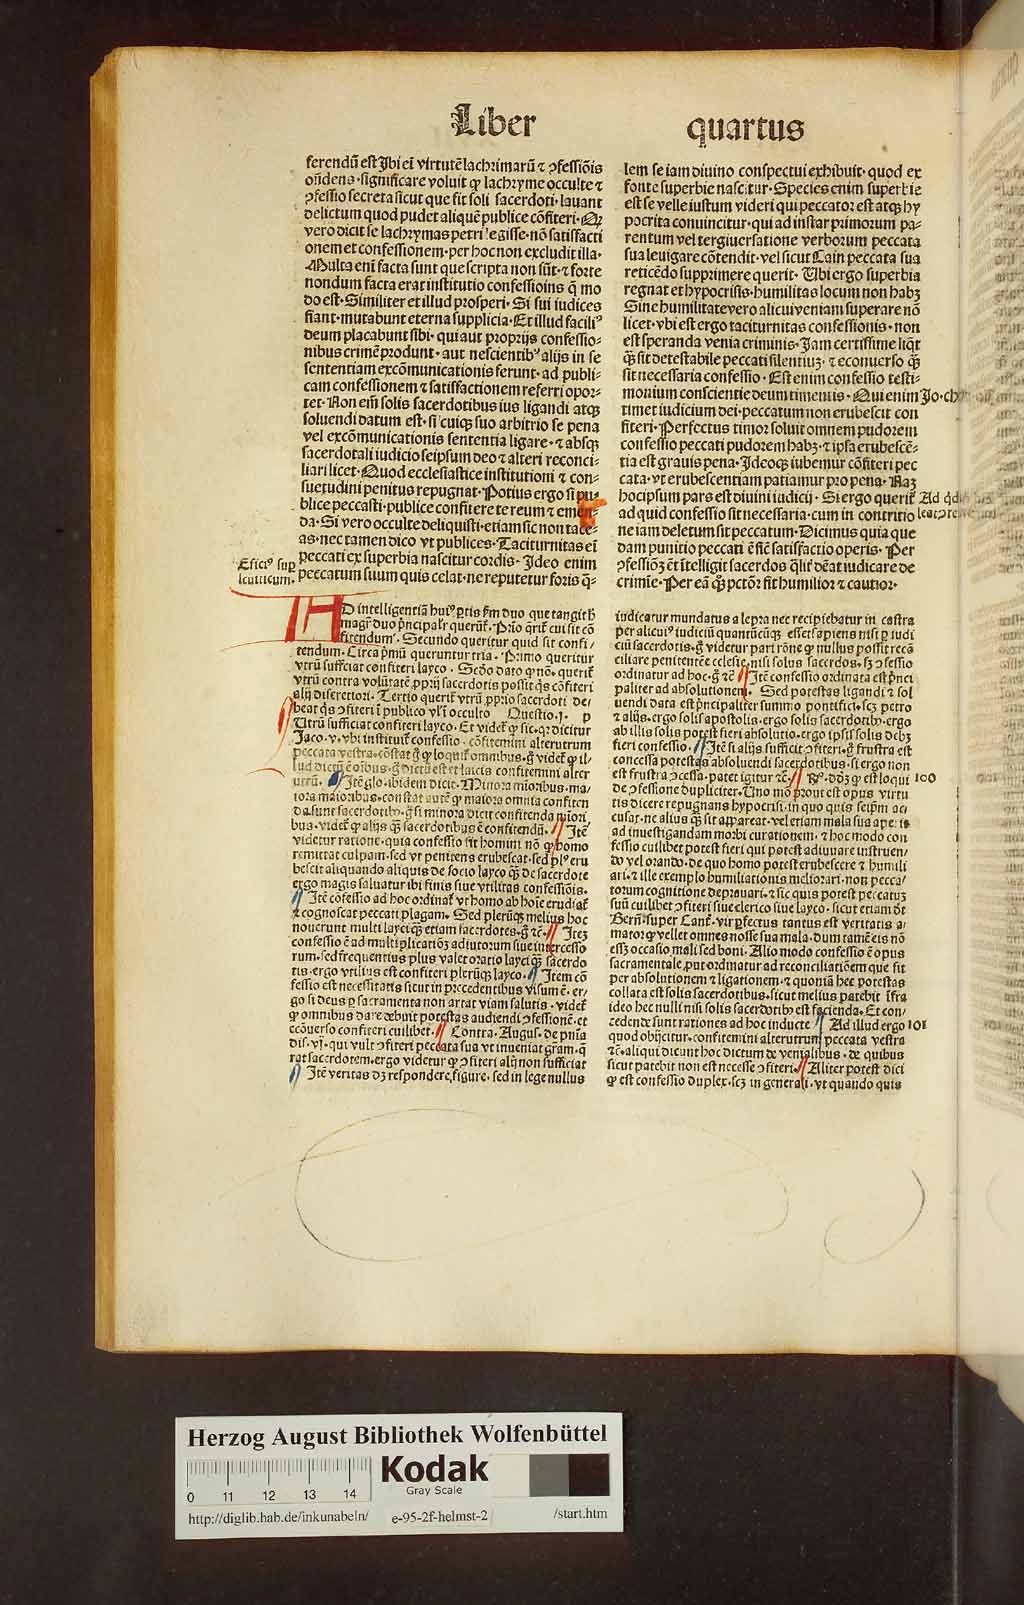 Liber quartus
ferendū est Ibi eī virtutē lachrimarū ⁊ ꝯfessiōis
oñdens · significare voluit ꝙ lachryme occulte ⁊
ꝯfessio secreta sicut que fit soli sacerdoti · lauant
delictum quod pudet aliquē publice cōfiteri · Qꝛ
vero dicit se lachrymas petri legisse · nō satisfacti
onem et confessionem · per hoc non excludit illa ·
Multa enī facta sunt que scripta non sūt · ⁊ forte
nondum facta erat institutio confessioīns q̄ mo
do est · Similiter et illud prosperi · Si sui iudices
fiant · mutabunt eterna supplicia · Et illud faciliꝰ
deum placabunt sibi · qui aut proprijs confessio⸗
nibus crimē produnt · aut nescientibꝰ alijs in se
sententiam excōmunicationis ferunt · ad publi⸗
cam confessionem ⁊ satisfactionem referri opor⸗
tet · Non em̄ solis sacerdotibus ius ligandi atqꝫ
soluendi datum est · si cuiqꝫ suo arbitrio se pena
vel excōmunicationis sententia ligare · ⁊ absqꝫ
sacerdotali iudicio seipsum deo ⁊ alteri reconci⸗
liari licet · Quod ecclesiastice institutioni ⁊ con⸗
suetudini penitus repugnat · Potius ergo si pu⸗
blice peccasti · publice confitere te reum ⁊ emen⸗
da · Si vero occulte deliquisti · etiam sic non tace⸗
as · nec tamen dico vt publices · Taciturnitas eī
peccati ex superbia nascitur cordis · Ideo enim
peccatum suum quis celat · ne reputetur foris q̄⸗
Eficiꝰ sup
lcuiticum ·
lem se iam diuino conspectui exhibuit · quod ex
fonte superbie nascitur · Species enim superbie
est se velle iustum videri qui peccator est atqꝫ hy
pocrita conuincitur · qui ad instar primorum pa⸗
rentum vel tergiuersatione verborum peccata
sua leuigare cōtendit · vel sicut Cain peccata sua
reticēdo supprimere querit · Ubi ergo superbia
regnat et hypocrisis · humilitas locum non habꝫ
Sine humilitate vero alicui veniam superare nō
licet · vbi est ergo taciturnitas confessionis · non
est speranda venia criminis · Jam certissime liqꝫt
q̄ꝫ sit detestabile peccati silentiuꝫ · ⁊ econuerso q̄ꝫ
sit necessaria confessio · Est enim confessio testi⸗
monium conscientie deum timentis · Qui enim
timet iudicium dei · peccatum non erubescit con
fiteri · Perfectus timor soluit omnem pudorem
confessio peccati pudorem habꝫ · ⁊ ipsa erubescē⸗
tia est grauis pena · Ideoqꝫ iubemur cōfiteri pec
cata · vt erubescentiam patiamur pro pena · Naꝫ
hoc ipsum pars est diuini iudicij · Si ergo querit̄
ad quid confessio sit necessaria · cum in contritio
ne iam deletum sit peccatum · Dicimus quia que
dam punitio peccati ē sic̄ satisfactio operis · Per
ꝯfessionꝫ et̄ ītelligit sacerdos q̄lit̄ dēat iudicare de
crimīe · Per eā q̄ꝫ pctōr fit humilior ⁊ cautior ·
AD intelligentiā huiꝰ ꝑtis
fitendum · Secundo queritur quid sit confi/
tendum · Circa pͥmū queruntur tria · Primo queritur
vtrū sufficiat confiteri layco · Scḋo dato ꝙ nō · querit̄
vtrū contra volūtatē ꝓprij sacerdotis possit q̄s cōfiteri
alij discretiori · Tertio querit̄ vtrū ꝓprio sacerdoti de/
beat q̄s ꝯfiteri ī publico vl̓ ī occulto Questio · j ·
Utrū sufficiat confiteri layco · Et videt̄ ꝙ sic · qꝛ dicitur
Jaco · v · vbi instituit̄ confessio · cōfitemini alterutrum
peccata vestra · cōstat ꝙ loquit̄ omnibus · ḡ videt̄ ꝙ il⸗
Itē glo · ibidem dicit · Minora mīoribus · ma⸗
iora maioribus · constat autē ꝙ maiora omnia confiten
da sunt sacerdotibꝰ · ḡ si minora dicit confitenda mīori
bus · videt̄ ꝙ alijs q̄ꝫ sacerdotibus ē confitendū · Itē
videtur ratione · quia confessio fit homini nō ꝙ homo
remittat culpam · sed vt penitens erubescat · sed plꝰ eru
bescit aliquando aliquis de socio layco q̄ꝫ de sacerdote
ergo magis saluatur ibi finis siue vtilitas confessiōis ·
Itē cōfessio ad hoc ordinat̄ vt homo ab hoīe erudiat̄
⁊ cognoscat peccati plagam · Sed plerūqꝫ melius hoc
nouerunt multi layci q̄ꝫ etiam sacerdotes · ḡ ⁊c̄ · Iteꝫ
confessio ē ad multiplicatioēꝫ adiutorum siue intercesso
rum · sed frequentius plus valet oratio layci q̄ꝫ sacerdo
tis · ergo vtilius est confiteri plerūqꝫ layco · Item cō
fessio est necessitatis sicut in precedentibus visum ē · er⸗
go si deus ꝑ sacramenta non artat viam salutis · videt̄
ꝙ omnibus dare debuit potestas audiendi ꝯfessionē · et
ecōuerso confiteri cuilibet · Contra · Augus · de pn̄ia
dis · vj · qui vult ꝯfiteri peccata sua vt inueniat gram · q̄
rat sacerdotem · ergo videtur ꝙ ꝯfiteri alij non sufficiat
Itē veritas dꝫ respondere figure · sed in lege nullus
iudicatur mundatus a lepra nec recipiebatur in castra
per alicuiꝰ iudiciū quantūcūqꝫ esset sapiens nisi ꝑ iudi
ciū sacerdotis · ḡ videtur pari rōne ꝙ nullus possit recō
ciliare penitentēe celesie nisi solus sacerdos · sꝫ ꝯfessio
ordinatur ad hoc · ḡ ⁊c̄ Itē confessio ordinata est pͥnci
paliter ad absolutionem · Sed potestas ligandi ⁊ sol
uendi data est pͥncipaliter summo pontifici · scꝫ petro
⁊ alijs · ergo solis apostolis · ergo solis sacerdotibꝰ · ergo
ab illis solis potest fieri absolutio · ergo ipsis solis debꝫ
fieri confessio · Itē si alijs sufficit ꝯfiteri · ḡ frustra est
concessa potestas absoluendi sacerdotibus · si ergo non
est frustra ꝯcessa · patet igitur ⁊c̄ · Rͦ · dꝫ ꝙ est loqui 100
de ꝯfessione dupliciter · Uno mō prout est opus virtu
tis dicere repugnans hypocrisi · in quo quis seipm̄ ac
cusat · ne alius q̄ꝫ sit appareat · vel etiam mala sua ape
ad inuestigandam morbi curationem · ⁊ hoc modo con
fessio cuilibet potest fieri qui potest adiuuare instruen/
do vel orando · de quo homo potest erubescere ⁊ humili
ari · ⁊ ille exemplo humiliationis meliorari · non pecca/
torum cognitione deprauari · ⁊ sic quis potest peccatuꝫ
suū cuilibet ꝯfiteri siue clerico siue layco · sicut etiam dt̄
Bern̄ · super Cant̄ · vir ꝑfectus tantus est veritatis a⸗
mator ꝙ vellet omnes nosse sua mala · dum tamē eis nō
essꝫ occasio mali sed boni · Alio modo confessio ē opus
sacramentale · put ordinatur ad reconciliatiōem que fit
per absolutionem ⁊ ligationem · ⁊ quoniā hec potestas
collata est solis sacerdotibus · sicut melius patebit īfra
ideo hec nulli nisi solis sacerdotibꝰ est facienda · Et con/
cedende sunt rationes ad hoc inducte Ad illud ergo 101
quod obijcitur · confitemini alterutrum peccata vestra
⁊c̄ · aliqui dicunt hoc dictum de venialibus · de quibus
sicut patebit non est necesse ꝯfiteri · Aliter potest dici
ꝙ est confessio duplex · scꝫ in generali · vt quando quis
Herzog August Bibliothek Wolfenbüttel
Kodak
Gray Scale
0 11 12 13 14
http://diglib.hab.de/inkunabeln/ e-95-2f-helmst-2 /start.htm